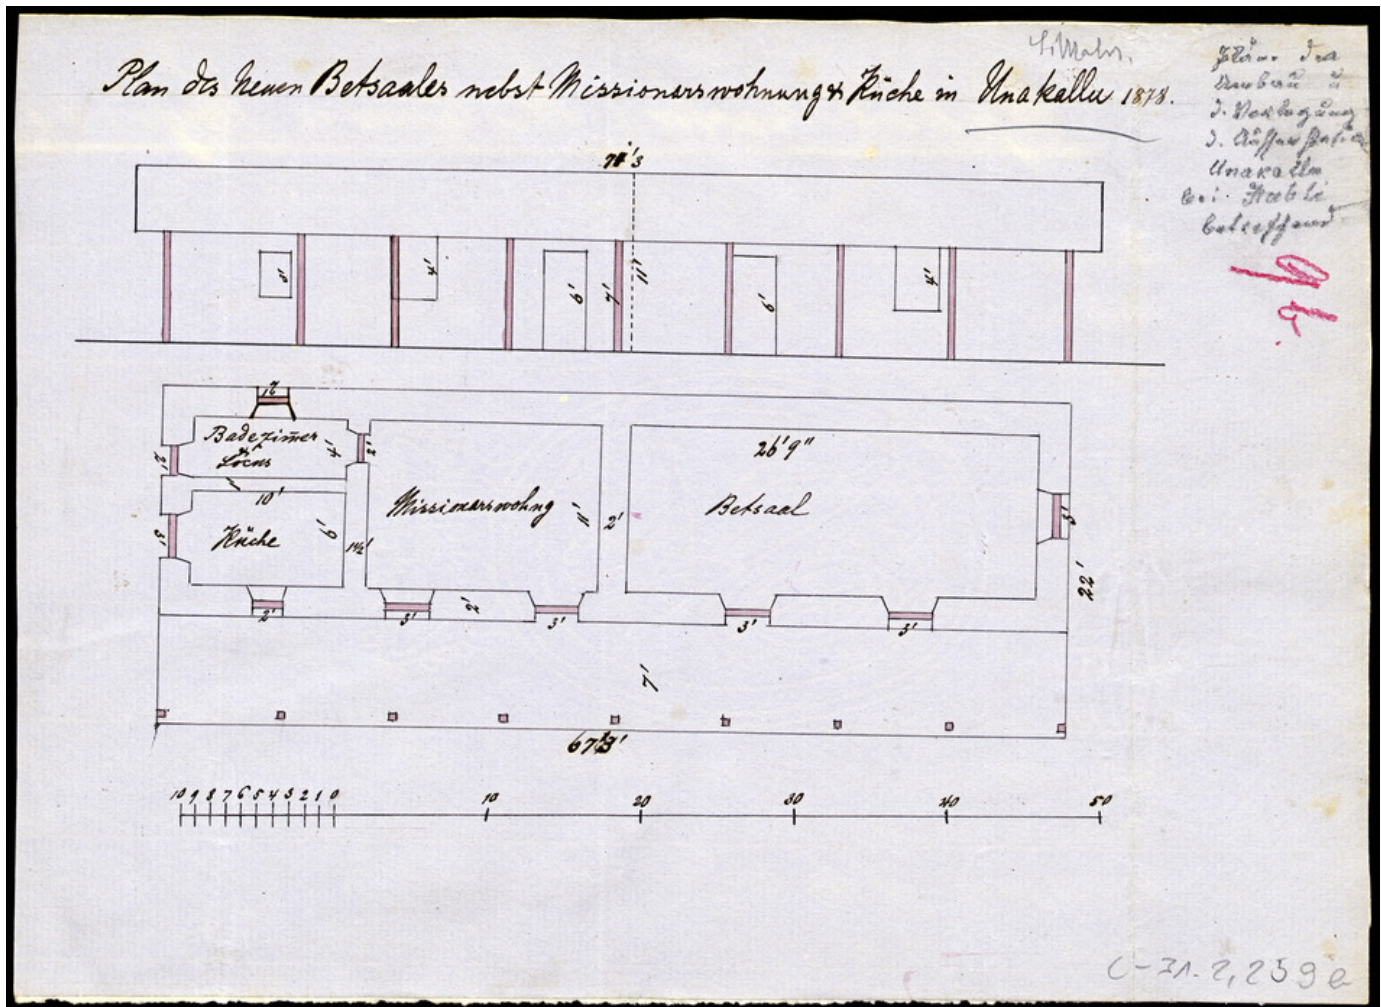 Plan des neuen Betsaales nebst Missionarswohnung & Küche in Unakallu 1878.
Pläne des
Umbau u
d. Verlegung
d.
Unakallu
bei
betreffend
11'
3'
4'
6'
7'
6'
4'
2'
Badezimer
&
Locus
2'
4'
2'
10'
Küche
6'
3'
1½'
Missionarswohng
11'
2'
26'9"
Betsaal
3'
22'
2'
3'
2'
3'
3'
3'
7'
10 9 8 7 6 5 4 3 2 1 0 10 20 30 40 50
C-31.2,259e